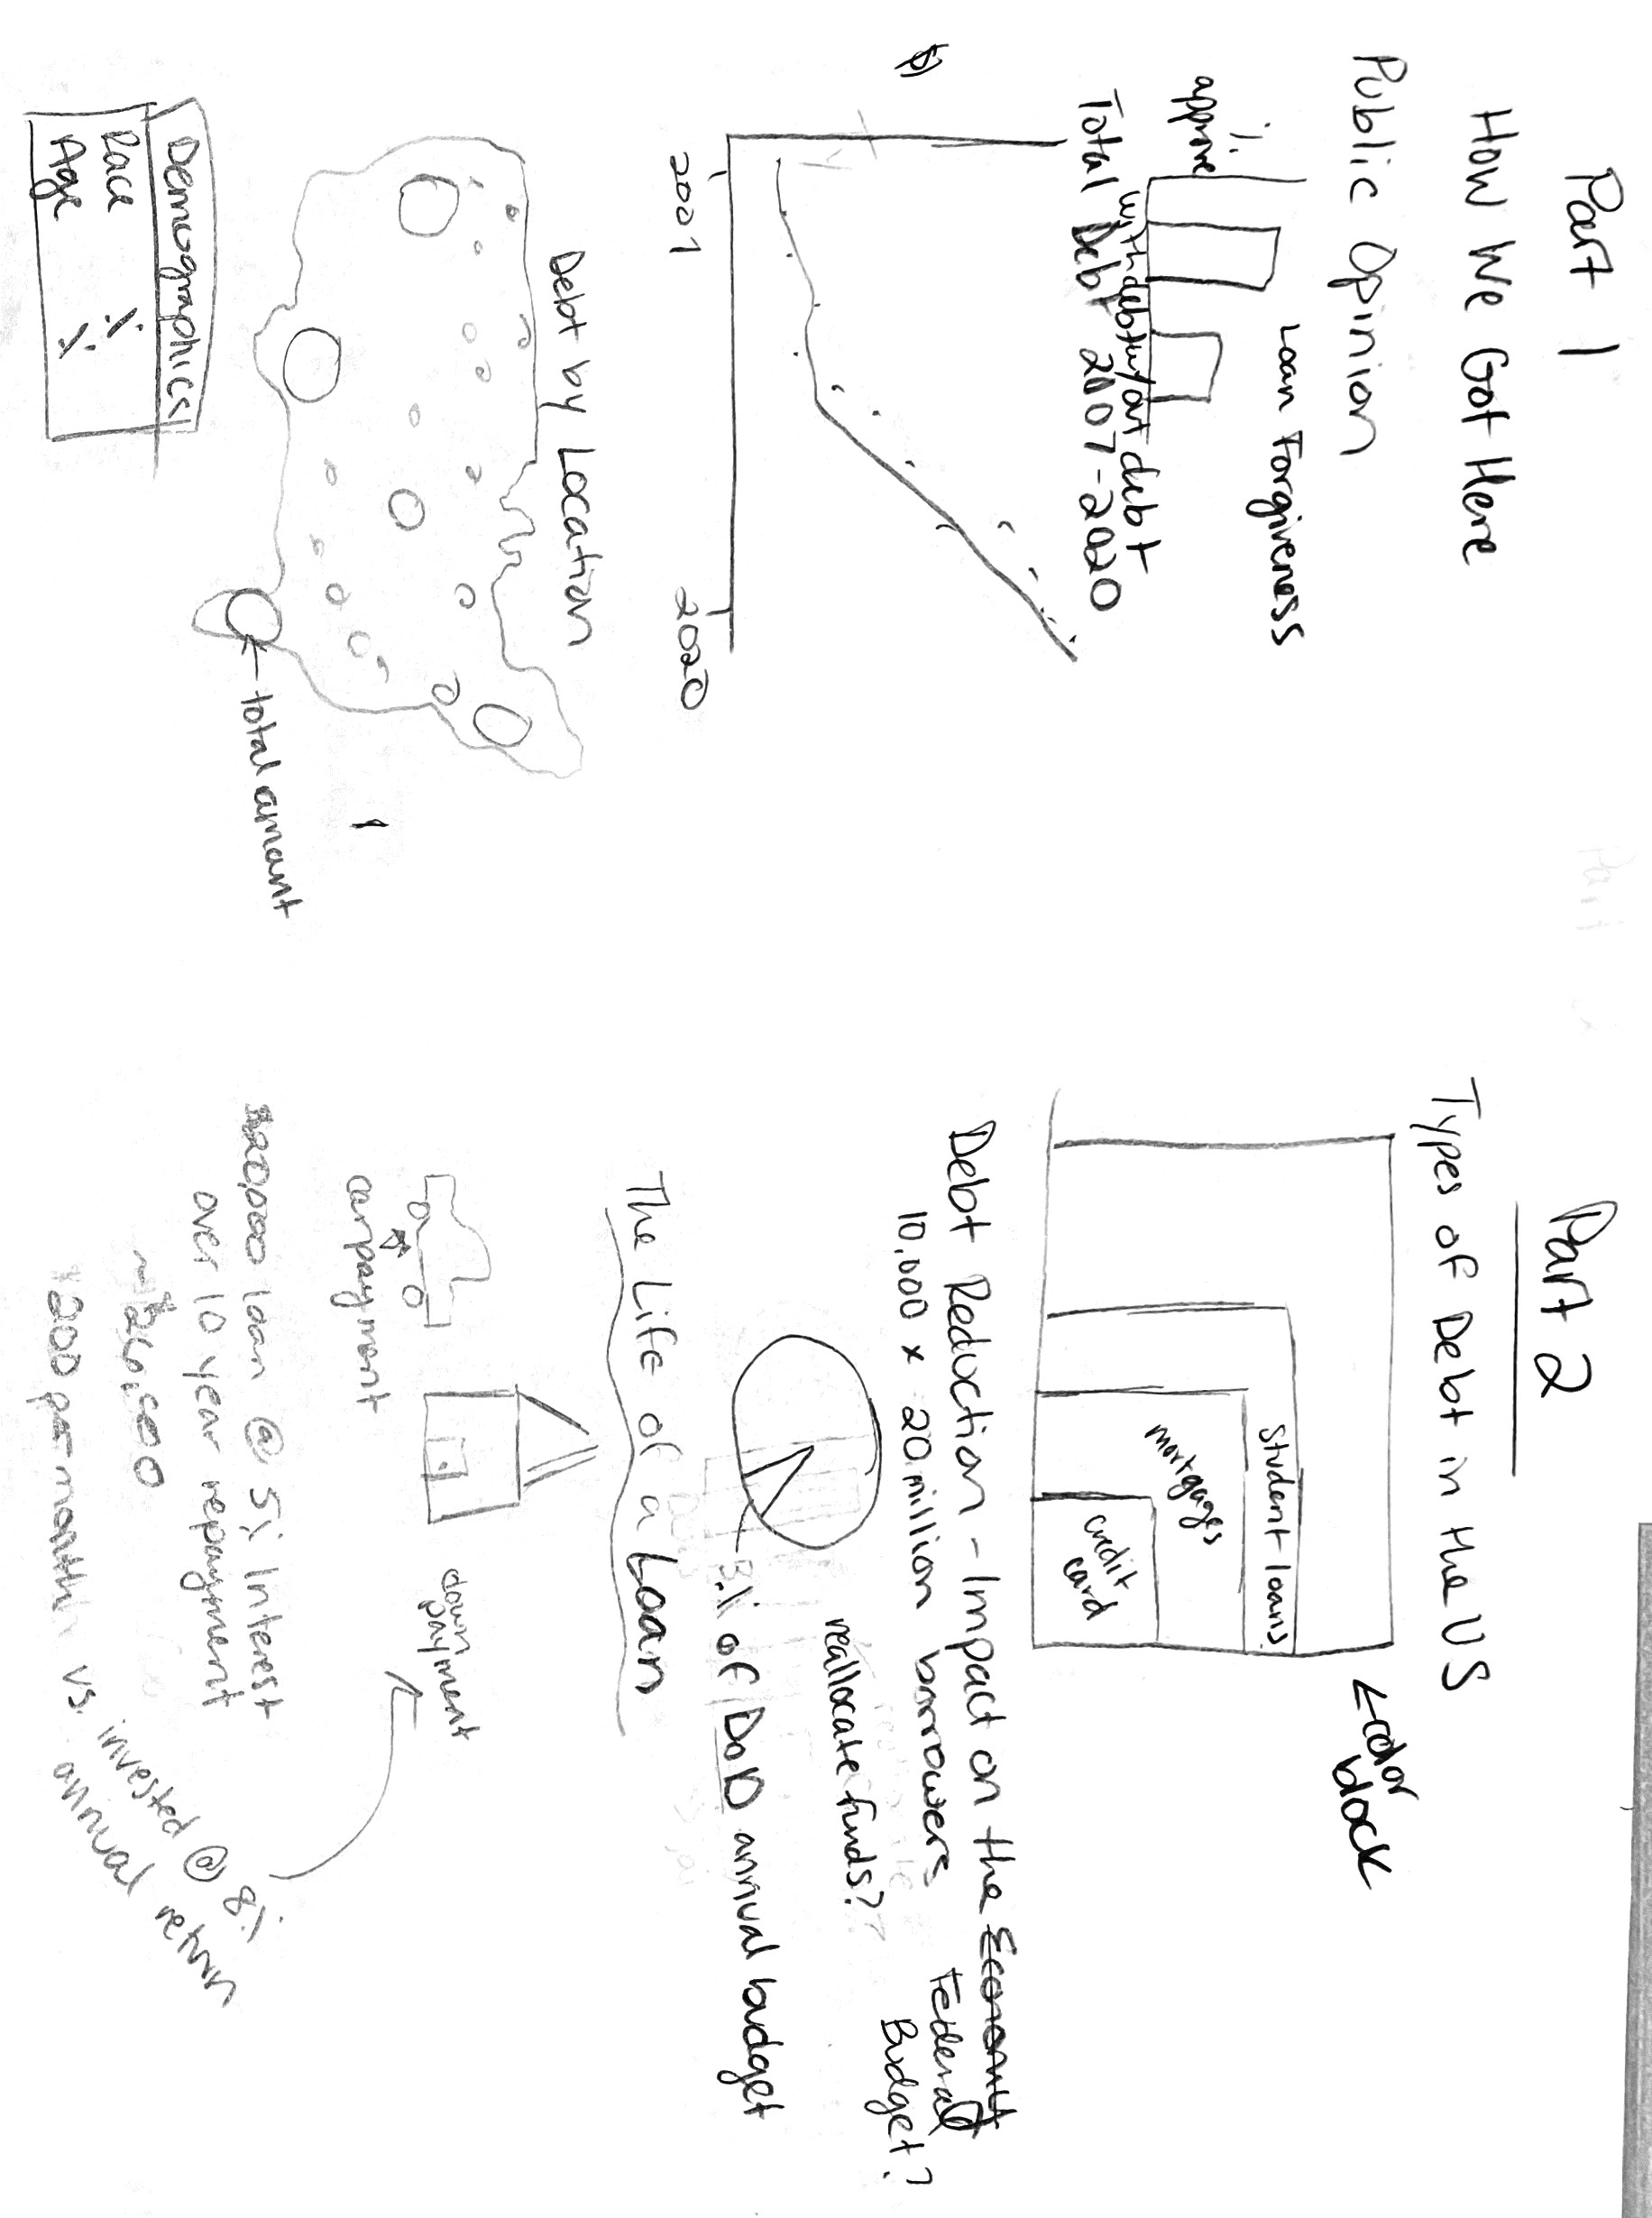 Part 1
How We Got Here
Public Opinion
Loan Forgiveness
% approve
with debt
w/out debt
Total Debt 2007-2020
2007
2020
Debt by Location
total amount
Demographics
Race %
Age %
Part 2
Types of Debt in the US
color
block
student loans
mortgages
credit
card
Debt Reduction - Impact on the Economy
Federal
Budget?
10,000 x 20 million borrowers
reallocate funds?
3% of DoD annual budget
The Life of a Loan
car payment
down
payment
$20,000 loan @ 5% Interest
over 10 year repayment
$200 per month vs. invested @ 8%
annual return